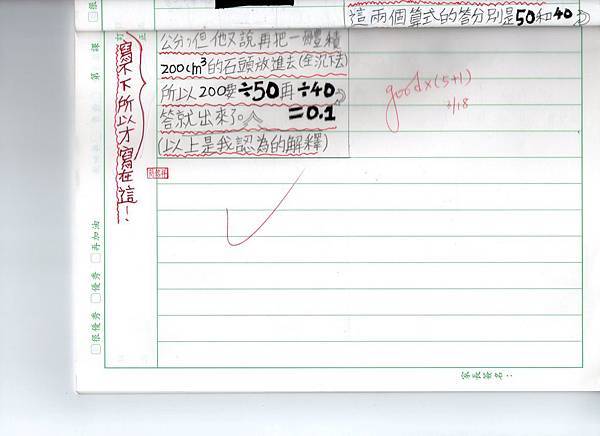 這兩個算式的答分別是50和40
公分,但他又說再把一體積
200cm³的石頭放進去(全沉下去)
所以200要÷50再÷40
答就出來了。 =0.1
(以上是我認為的解釋)
寫不下所以才寫在這!
good×(5+1)
2/18
第 課
訂正
□很優秀 □優秀 □再加油
家長簽名: